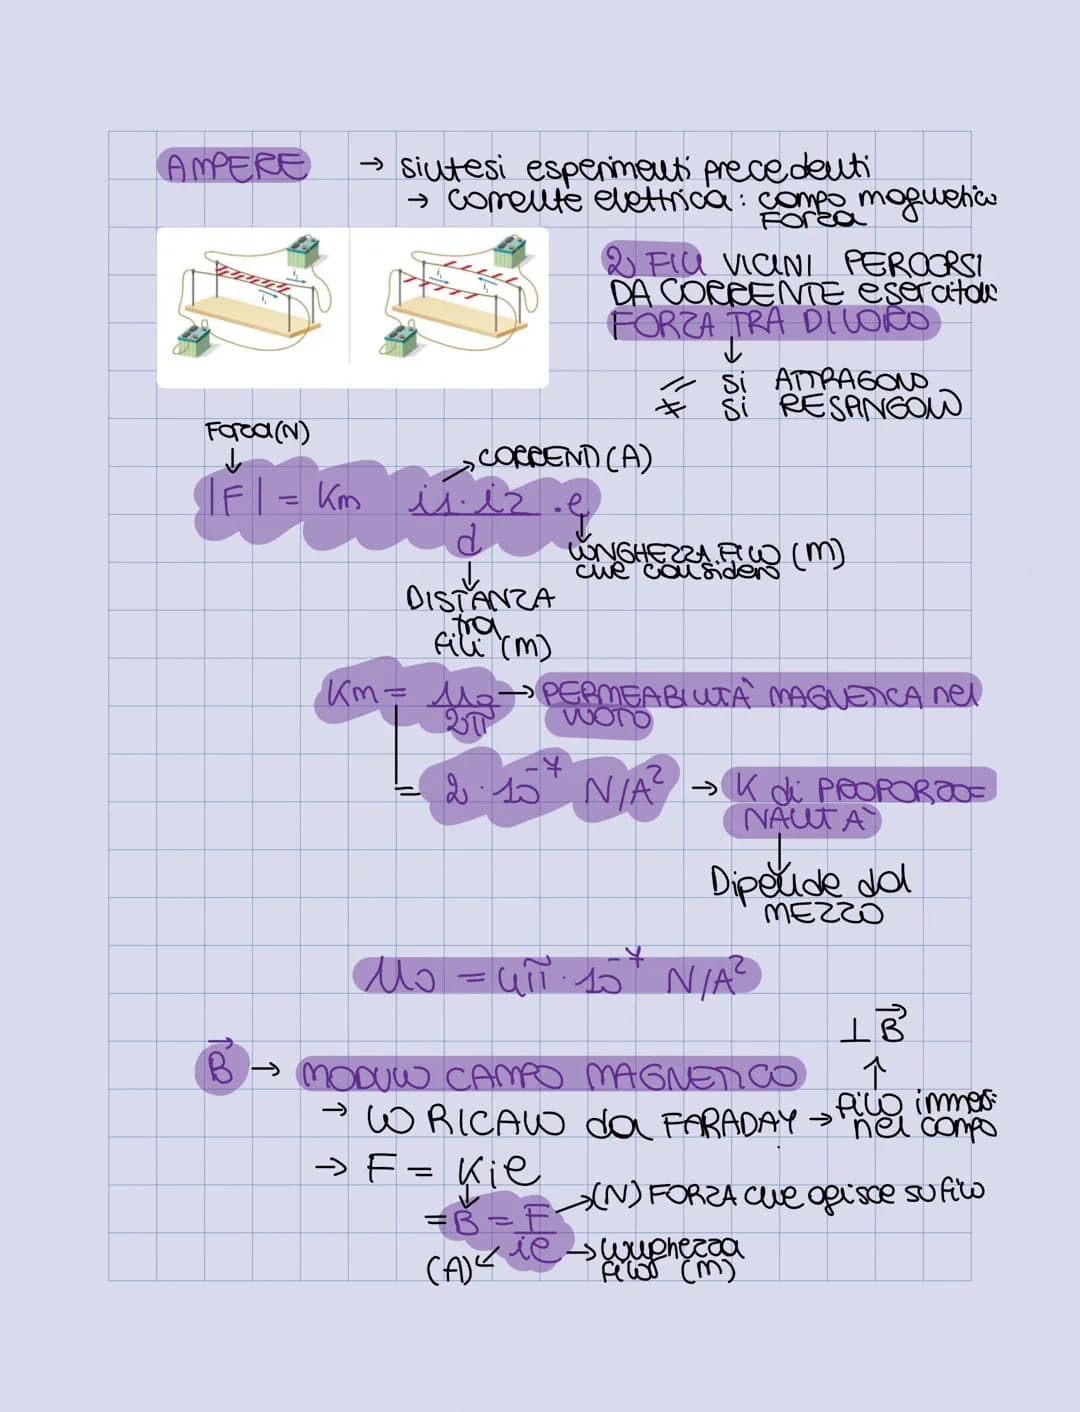 AMPERE → sintesi esperimenti precedenti
→ corrente elettrica: campo magnetico
Forza
2 FILI VICINI PERCORSI
DA CORRENTE esercitano
FORZA TRA DI LORO
↓
// si ATTRAGONO
si RESPINGONO
i₂
i₁
i₁
i₂
Forza (N)
↓
CORRENTI (A)
|F| = Km i1·i2 · l
d
LUNGHEZZA FILO (m)
che considero
↓
DISTANZA
tra
fili (m)
Km = μ0 → PERMEABILITÀ MAGNETICA nel
2π VUOTO
= 2·10⁻⁷ N/A² → K di PROPORZIO=
NALITÀ
↓
Dipende dal
MEZZO
μ0 = 4π·10⁻⁷ N/A²
⊥ B⃗
↑
B⃗ → MODULO CAMPO MAGNETICO
→ LO RICAVO da FARADAY → filo immerso
nel campo
→ F = Kil
↓
= B = F → (N) FORZA che agisce su filo
il → lunghezza
(A) filo (m)